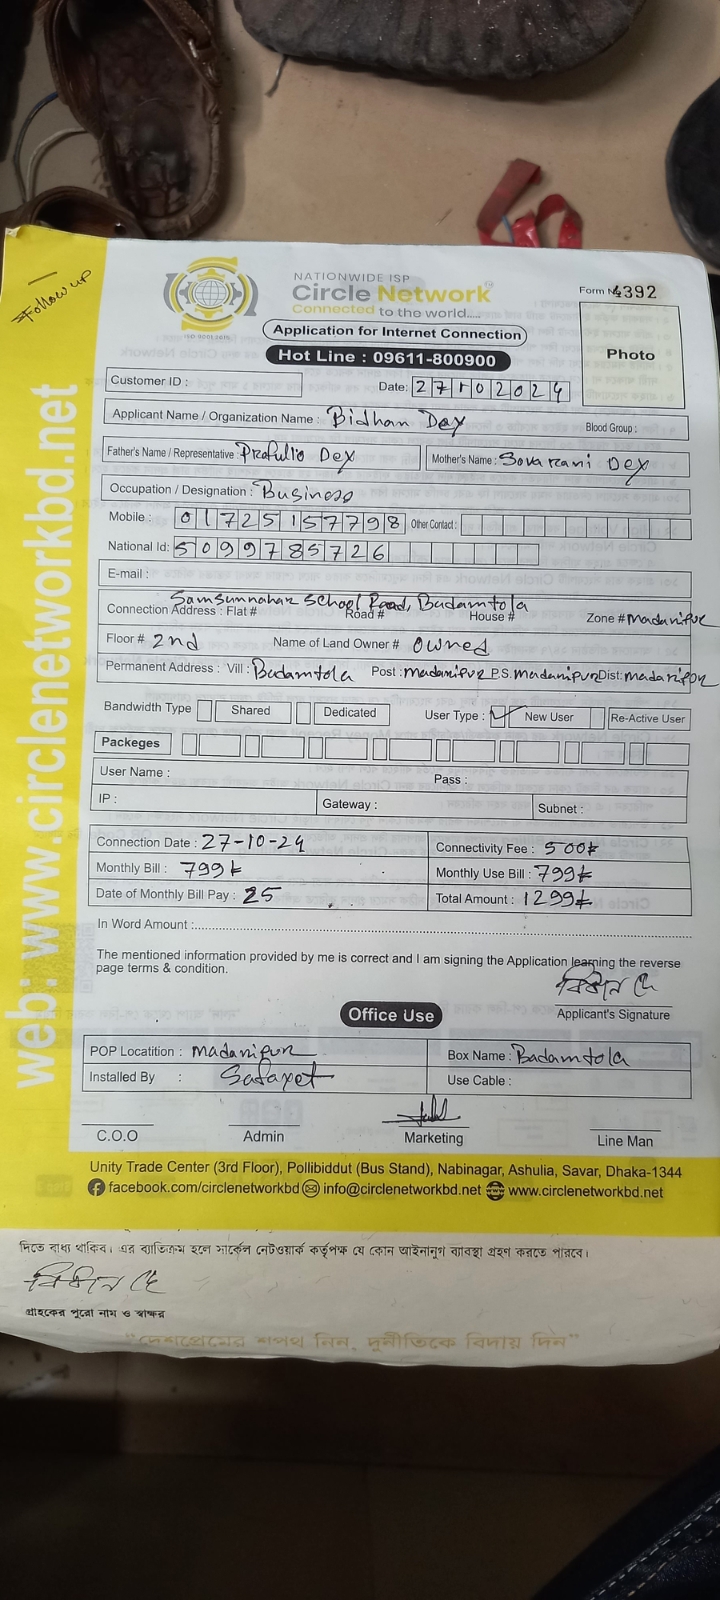 Follow up
NATIONWIDE ISP
Circle Network
Connected to the world.....
ISO 9001:2015
Form No 4392
Application for Internet Connection
Hot Line : 09611-800900
Photo
Customer ID :
Date: 27102024
Applicant Name / Organization Name : Bidhan Dey
Blood Group :
Father's Name / Representative : Profullo Dey
Mother's Name : Sova rani Dey
Occupation / Designation : Business
Mobile : 01725157798 Other Contact :
National Id: 5099785726
E-mail :
Samsunnahar School Road, Badamtola
Connection Address : Flat # Road # House # Zone # madaripur
Floor # 2nd Name of Land Owner # owned
Permanent Address : Vill : Badamtola Post : madaripur P.S. madaripur Dist: madaripur
Bandwidth Type Shared Dedicated User Type : New User Re-Active User
Packeges
User Name : Pass :
IP : Gateway : Subnet :
Connection Date : 27-10-24 Connectivity Fee : 500/-
Monthly Bill : 799/- Monthly Use Bill : 799/-
Date of Monthly Bill Pay : 25 Total Amount : 1299/-
In Word Amount :
The mentioned information provided by me is correct and I am signing the Application learning the reverse
page terms & condition.
বিধান দে
Applicant's Signature
Office Use
POP Locatition : madaripur Box Name : Badamtola
Installed By : Safayet Use Cable :
C.O.O Admin Marketing Line Man
Unity Trade Center (3rd Floor), Pollibiddut (Bus Stand), Nabinagar, Ashulia, Savar, Dhaka-1344
facebook.com/circlenetworkbd info@circlenetworkbd.net www.circlenetworkbd.net
web: www.circlenetworkbd.net
দিতে বাধ্য থাকিব। এর ব্যতিক্রম হলে সার্কেল নেটওয়ার্ক কর্তৃপক্ষ যে কোন আইনানুগ ব্যাবস্থা গ্রহণ করতে পারবে।
বিধান দে
গ্রাহকের পুরো নাম ও স্বাক্ষর
"দেশপ্রেমের শপথ নিন, দুর্নীতিকে বিদায় দিন"